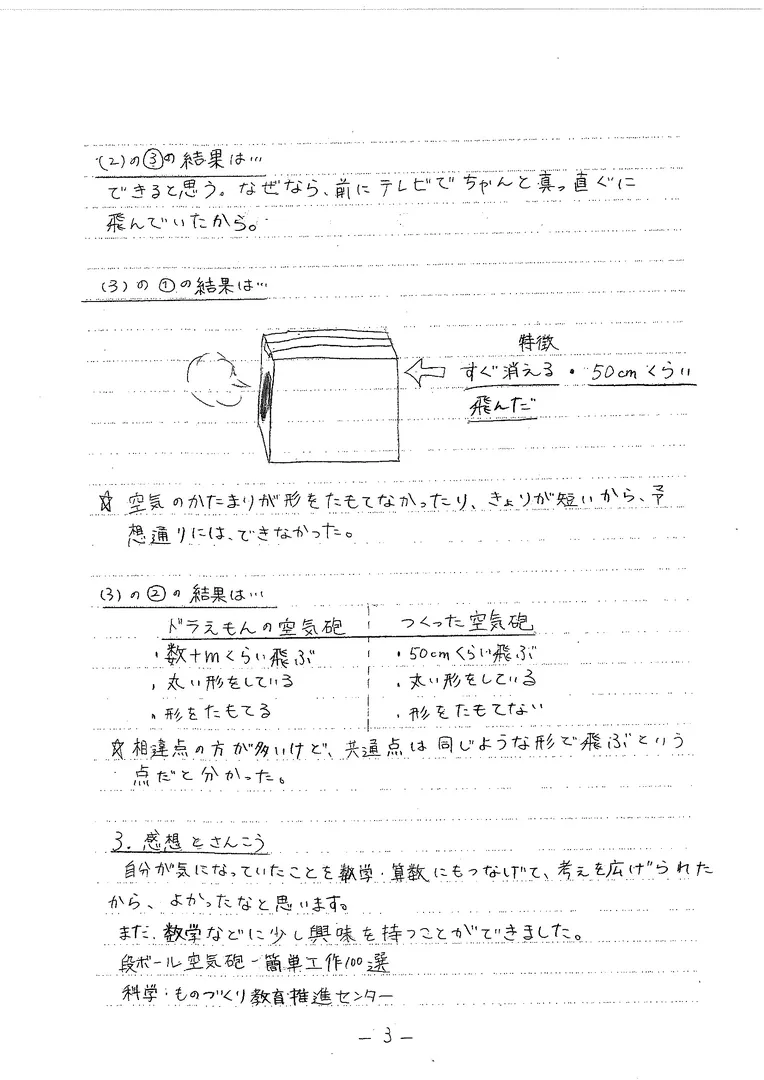 (2)の③の結果は…
できると思う。なぜなら、前にテレビでちゃんと真っ直ぐに
飛んでいたから。
(3)の①の結果は…
特徴
すぐ消える・50cmくらい
飛んだ
☆空気のかたまりが形をたもてなかったり、きょりが短いから、予
想通りには、できなかった。
(3)の②の結果は…
ドラえもんの空気砲 つくった空気砲
・数十mくらい飛ぶ ・50cmくらい飛ぶ
・太い形をしている ・太い形をしている
・形をたもてる ・形をたもてない
☆相違点の方が多いけど、共通点は同じような形で飛ぶという
点だと分かった。
3.感想とさんこう
自分が気になっていたことを数学・算数にもつなげて、考えを広げられた
から、よかったなと思います。
また、数学などに少し興味を持つことができました。
段ボール空気砲-簡単工作100選
科学・ものづくり教育推進センター
-3-